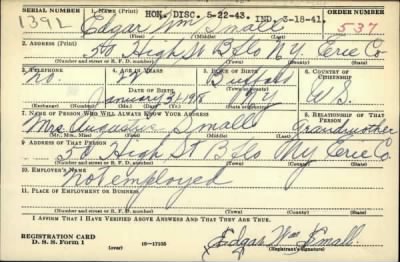 HON. DISC. 5-22-43. IND. 3-18-41.
SERIAL NUMBER 1. NAME (Print) ORDER NUMBER
1392 Edgar Wm Small 537
(First) (Middle) (Last)
2. ADDRESS (Print)
50 High St Bflo N.Y. Erie Co
(Number and street or R. F. D. number) (Town) (County) (State)
3. TELEPHONE 4. AGE IN YEARS 5. PLACE OF BIRTH 6. COUNTRY OF CITIZENSHIP
no. Buffalo
DATE OF BIRTH (Town or county)
January U.S.
(Exchange) (Number) (Mo.) (Day) (Yr.) (State or country)
7. NAME OF PERSON WHO WILL ALWAYS KNOW YOUR ADDRESS 8. RELATIONSHIP OF THAT PERSON
Mrs. Small Grandmother
(Mr., Mrs., Miss) (First) (Middle) (Last)
9. ADDRESS OF THAT PERSON
50 High St Bflo N.Y. Erie Co.
(Number and street or R. F. D. number) (Town) (County) (State)
10. EMPLOYER'S NAME
not employed
11. PLACE OF EMPLOYMENT OR BUSINESS
(Number and street or R. F. D. number) (Town) (County) (State)
I AFFIRM THAT I HAVE VERIFIED ABOVE ANSWERS AND THAT THEY ARE TRUE.
REGISTRATION CARD
D. S. S. Form 1 (over) 16-17105 Edgar Wm Small
(Registrant's signature)